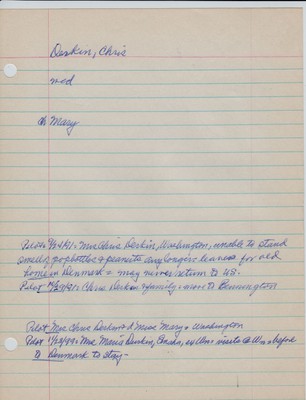 Deskin, Chris
wed
d Mary
Pilot: Mrs Chris Deskin, Washington, unable to stand
smell of popbottles & peanuts any longer leaves for old
home in Denmark & may never return to US.
Pilot: Chris Deskin & family move to Bennington
Pilot: Mrs Chris Deskin & d Miss Mary Washington
Pilot Mrs Maria Deskin, Omaha, ex Wn visits @ Wn before
to Denmark to stay -